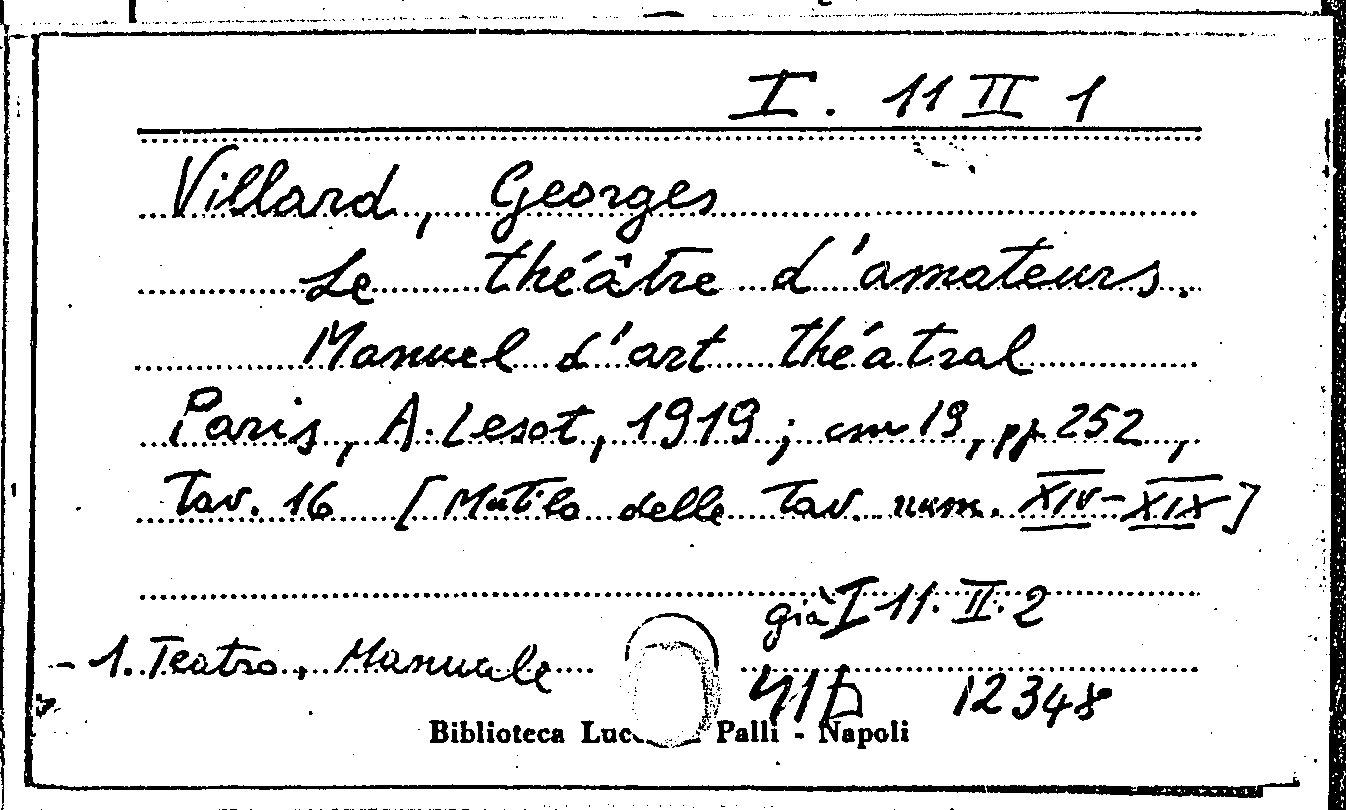 I. 11 II 1
Villard, Georges
Le théâtre d'amateurs.
Manuel d'art théatral
Paris, A. Lesot, 1919; cm 19, pp. 252,
Tav. 16 [Mutilo delle Tav. num. XIV-XIX]
già I 11. II. 2
- 1. Teatro, Manuale
12348
Biblioteca Palli - Napoli